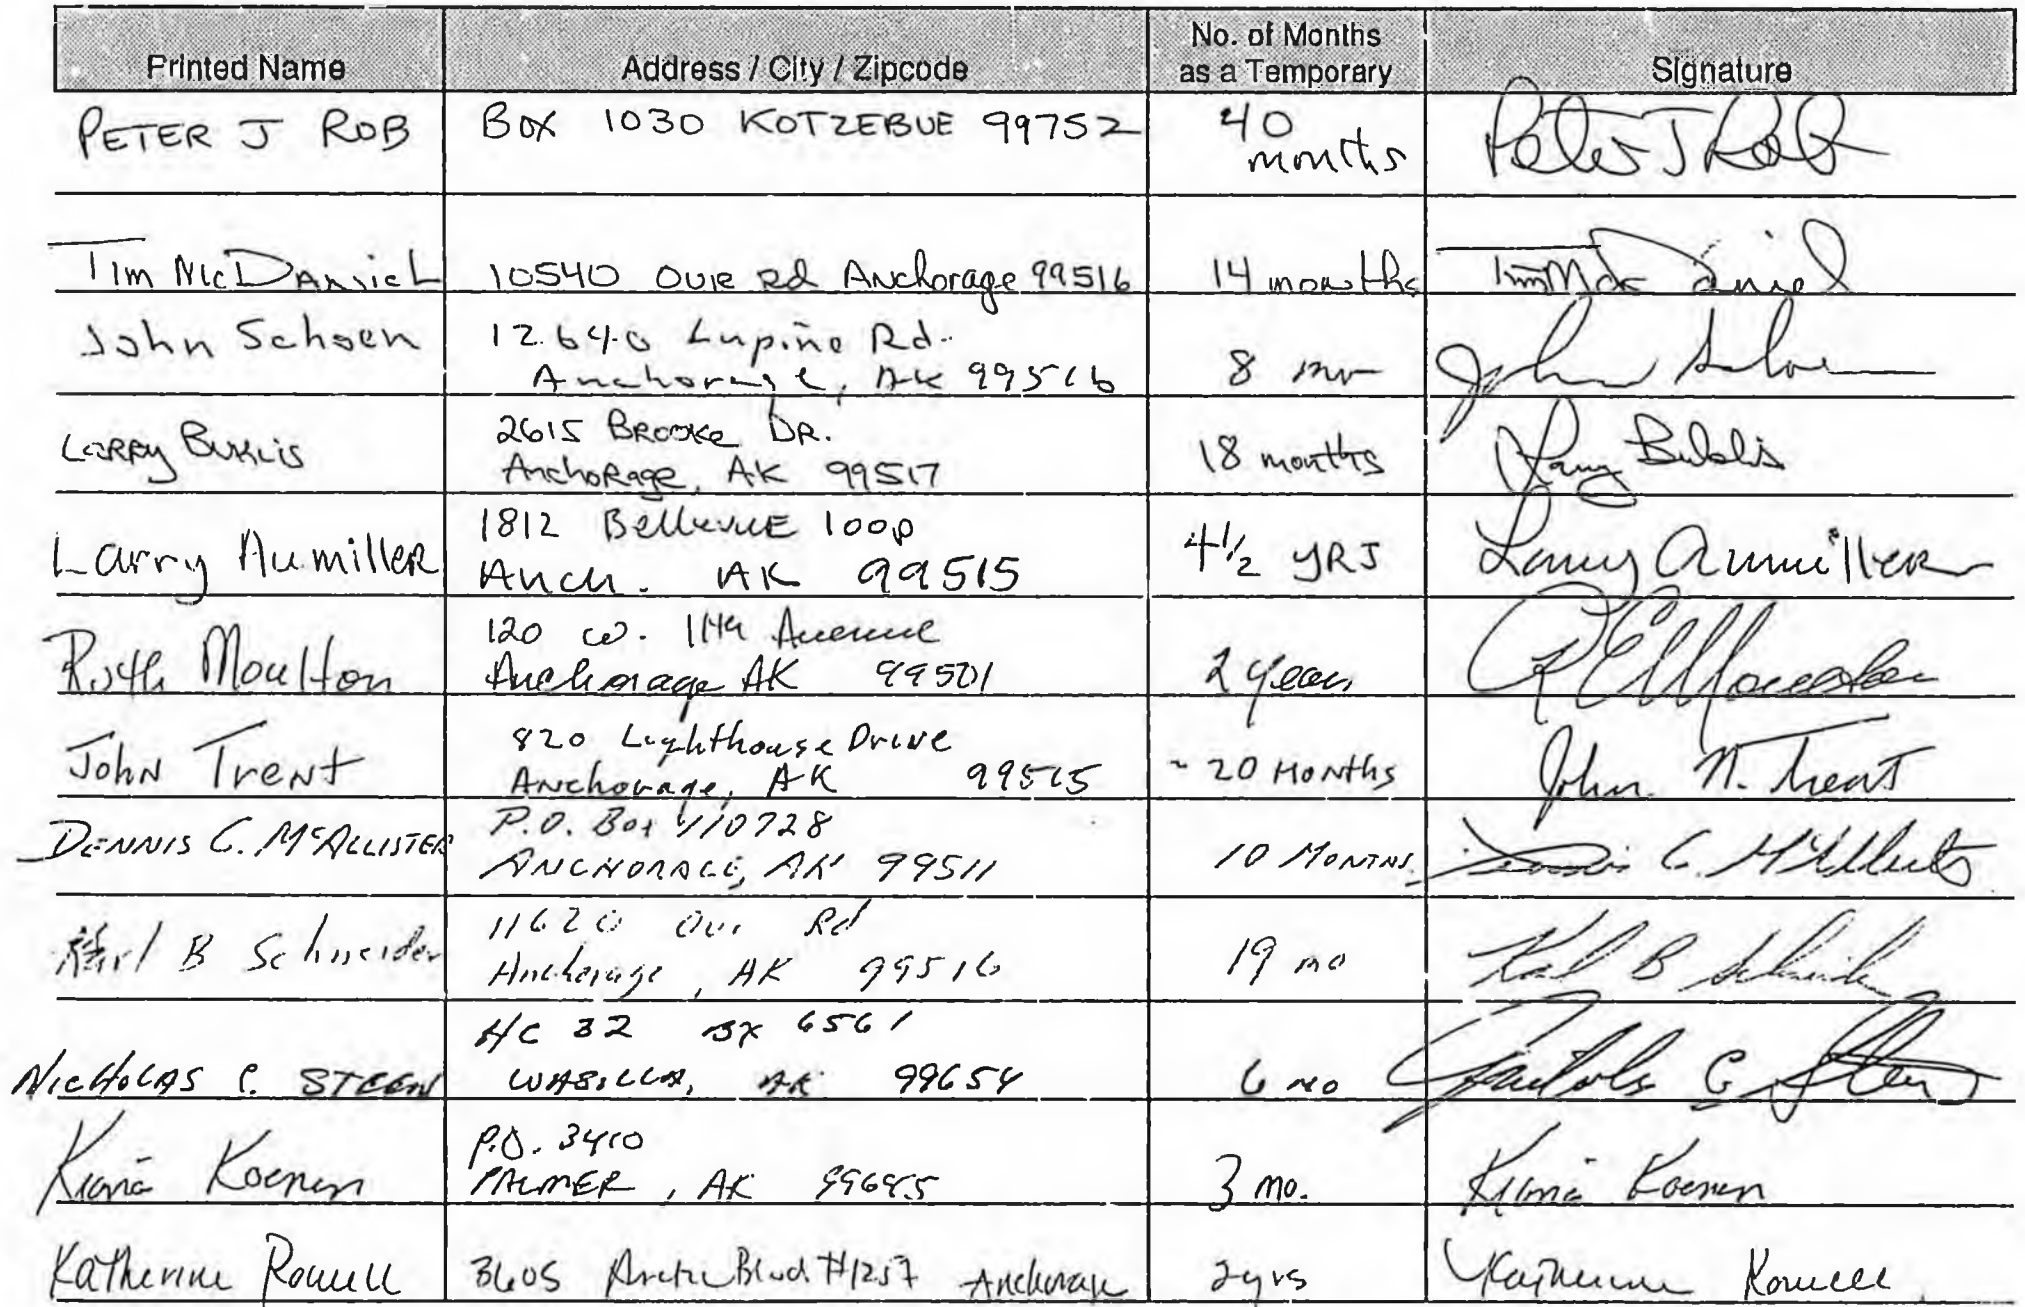 Printed Name Address / City / Zipcode No. of Months as a Temporary Signature
PETER J ROB BOX 1030 KOTZEBUE 99752 40 months Peter J Rob
Tim McDaniel 10540 Our Rd Anchorage 99516 14 months Tim McDaniel
John Schoen 12640 Lupine Rd.
Anchorage, AK 99516 8 mo John Schoen
Larry Buklis 2615 Brooke DR.
Anchorage, AK 99517 18 months Larry Buklis
Larry Aumiller 1812 Bellevue loop
Anch. AK 99515 4 1/2 YRS Larry Aumiller
Ruth Moulton 120 W. 11th Avenue
Anchorage AK 99501 2 years R E Moulton
John Trent 820 Lighthouse Drive
Anchorage, AK 99515 ~ 20 Months John N. Trent
DENNIS C. McALLISTER P.O. Box 110728
ANCHORAGE, AK 99511 10 MONTHS Dennis C. McAllister
Karl B Schneider 11620 Our Rd
Anchorage, AK 99516 19 mo Karl B Schneider
NICHOLAS C. STEEN HC 32 BX 6561
WASILLA, AK 99654 6 mo Nicholas C Steen
Koenen P.O. 3410
PALMER, AK 99645 3 mo. Koenen
Katherine Rowell 3605 Arctic Blvd #1257 Anchorage 2 yrs Katherine Rowell